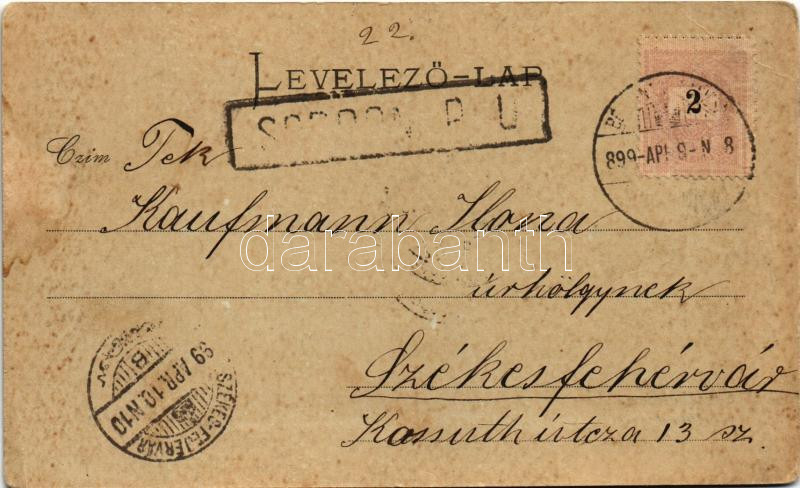 22.
LEVELEZŐ-LAP
SOPRON P. U
2
899-APR 9-N 8
Czim Tek
Kaufmann Ilona
darabanth
úrhölgynek
Székesfehérvár
Kossuth útcza 13 sz.
99 APR. 10. N10
SZÉKES-FEJÉRVÁR